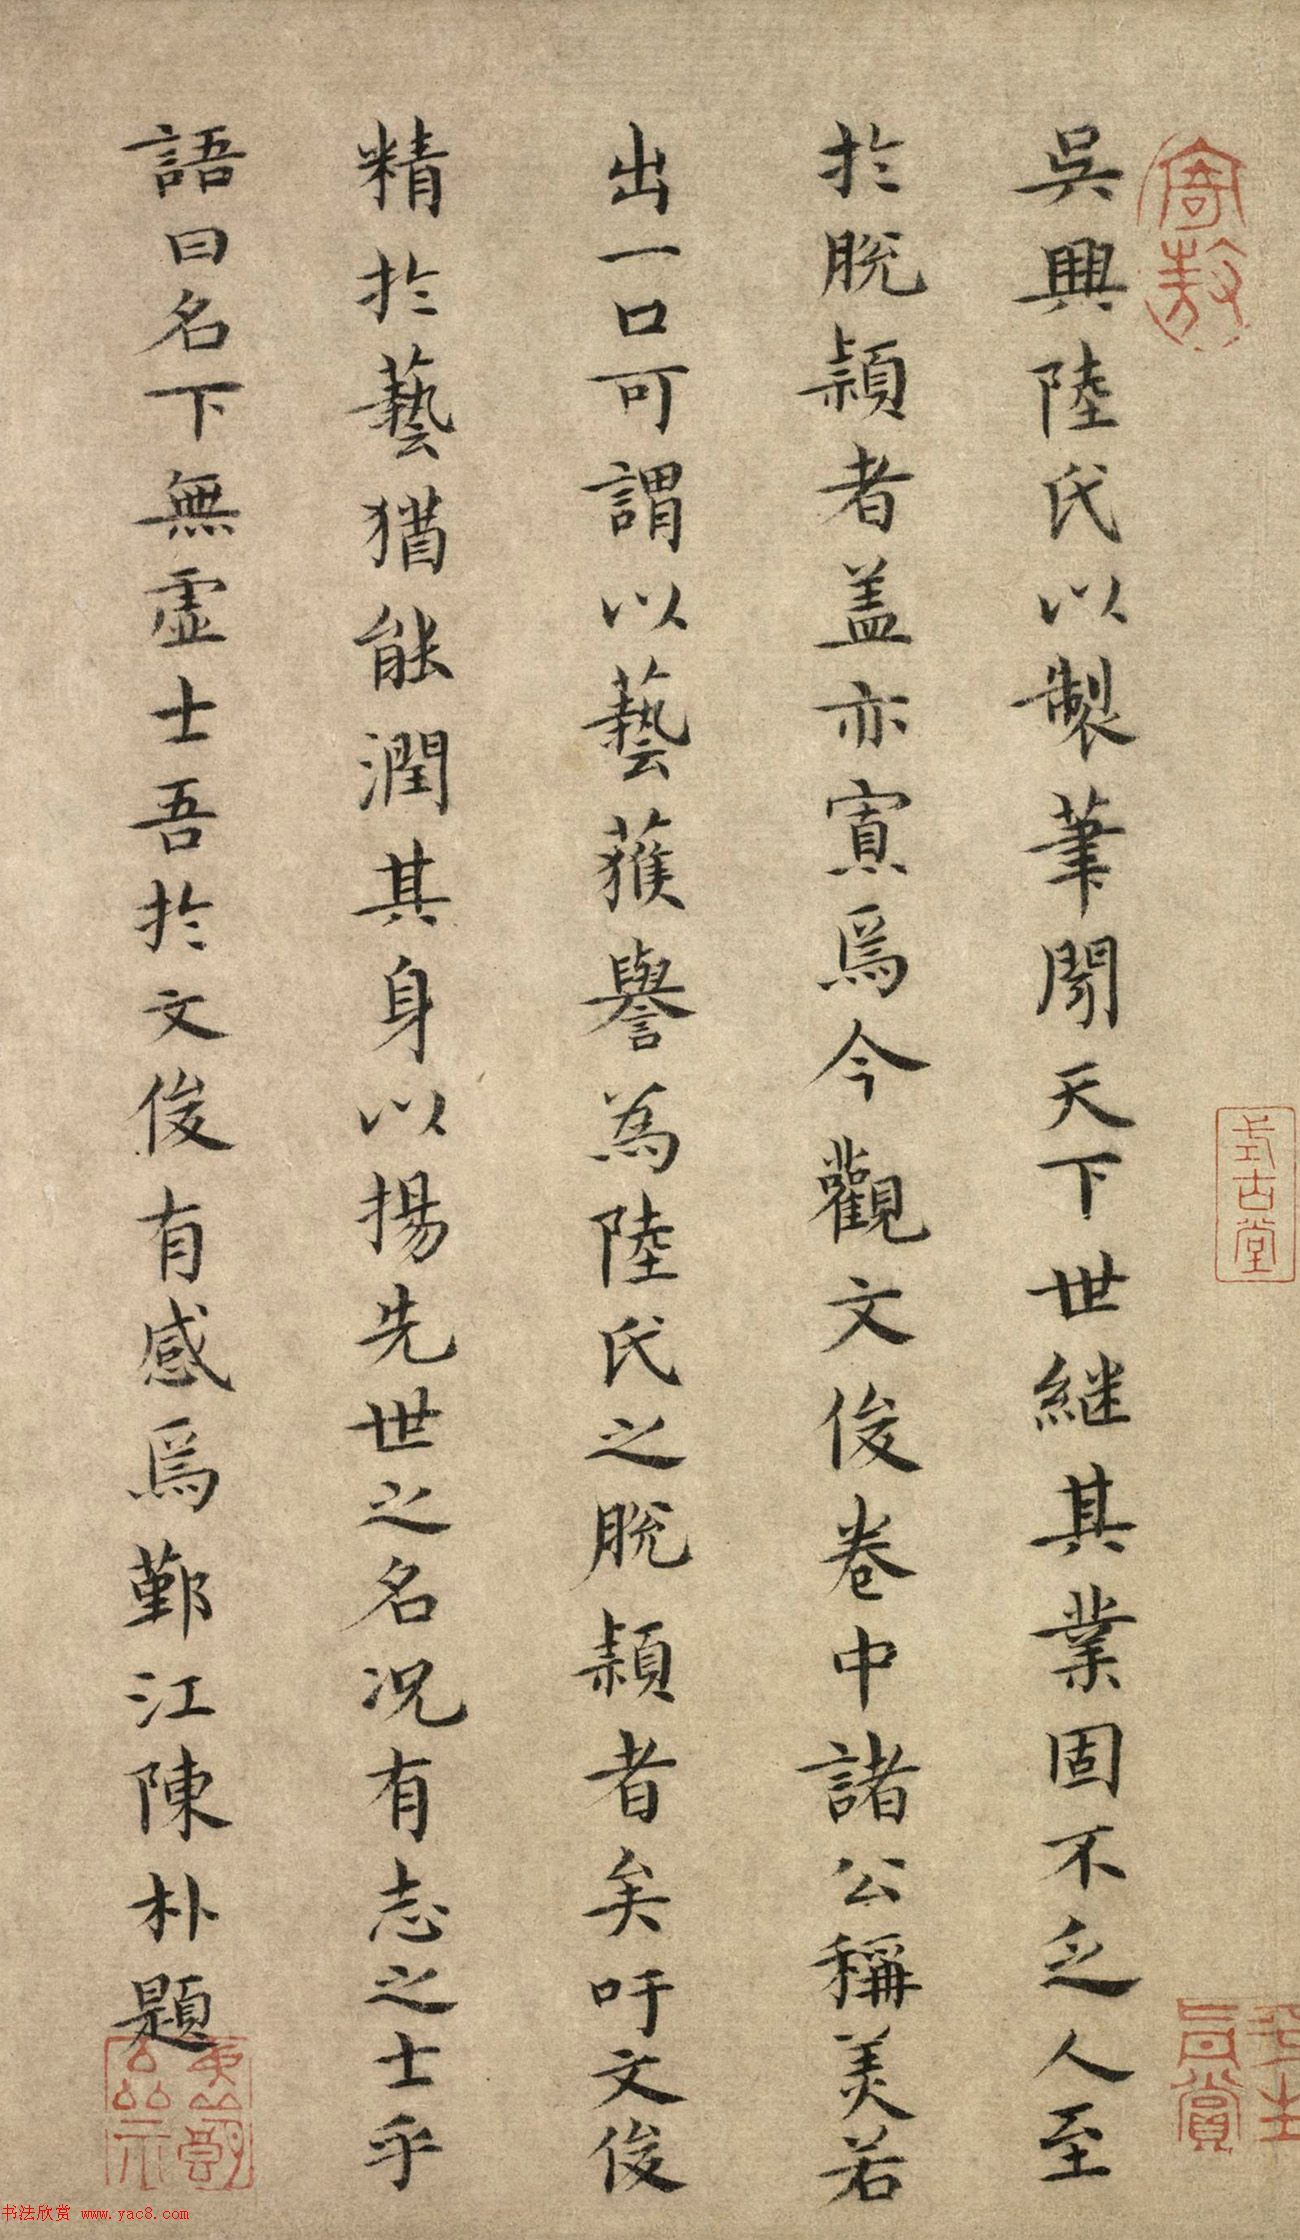 吳興陸氏以製筆聞天下世継其業固不乏人至
於脫穎者盖亦寡焉今觀文俊卷中諸公稱美若
出一口可謂以藝獲譽為陸氏之脫穎者矣吁文俊
精於藝猶能潤其身以揚先世之名况有志之士乎
語曰名下無虛士吾於文俊有感焉鄞江陳朴題
式古堂
书法欣赏 www.yac8.com